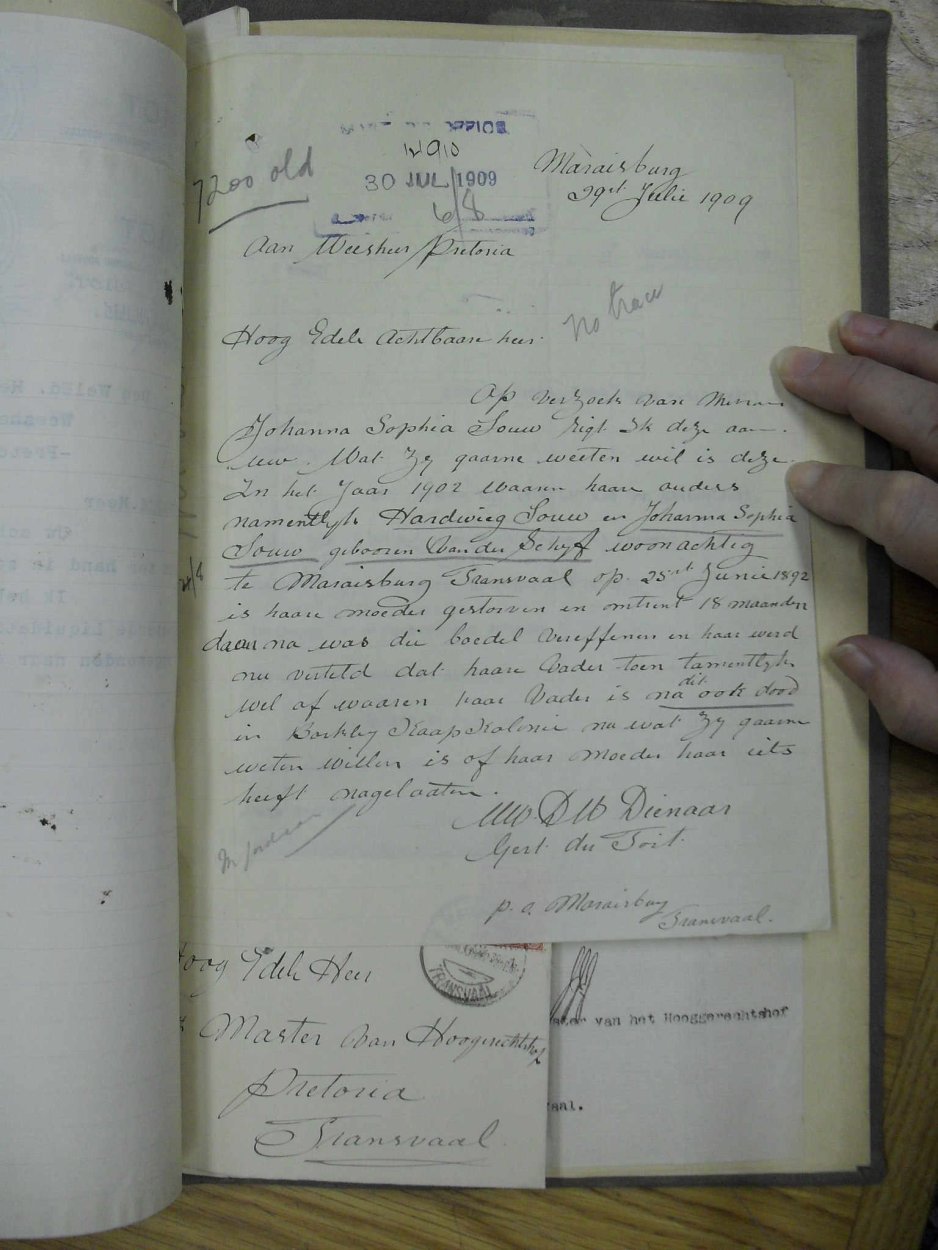 7200 old
30 JUL 1909
6/8
Maraisburg
29st Julie 1909
Aan Weesheer Pretoria
No trace
Hoog Edele Achtbaare heer.
Op verzoek van Mevrouw
Johanna Sophia Louw rigt Ik deze aan
uw. Wat zy gaarne weeten wil is deze
In het Jaar 1902 waaren haare ouders
namentlyk Hardwieg Louw en Johanna Sophia
Louw gebooren Van der Schyf woonachtig
te Maraisburg Transvaal op 25st Junie 1892
is haare moeder gestorven en omtrent 18 maanden
daar na was die boedel vereffenen en haar werd
nu verteld dat haare Vader toen tamentlyk
wel af waaren haar Vader is na dit ook dood
in Barkley Kaap Kolonie nu wat zy gaarne
weten willen is of haar moeder haar iets
heeft nagelaaten.
UW. D W Dienaar
Gert du Toit.
p. a. Maraisburg
Transvaal.
Hoog Edele Heer
Master Van Hoogerechtshof
Pretoria
Transvaal
TRANSVAAL
van het Hooggerechtshof
aal.
Den Weled. He
Weeshee
-Preto
Heer
hand is
Ik he